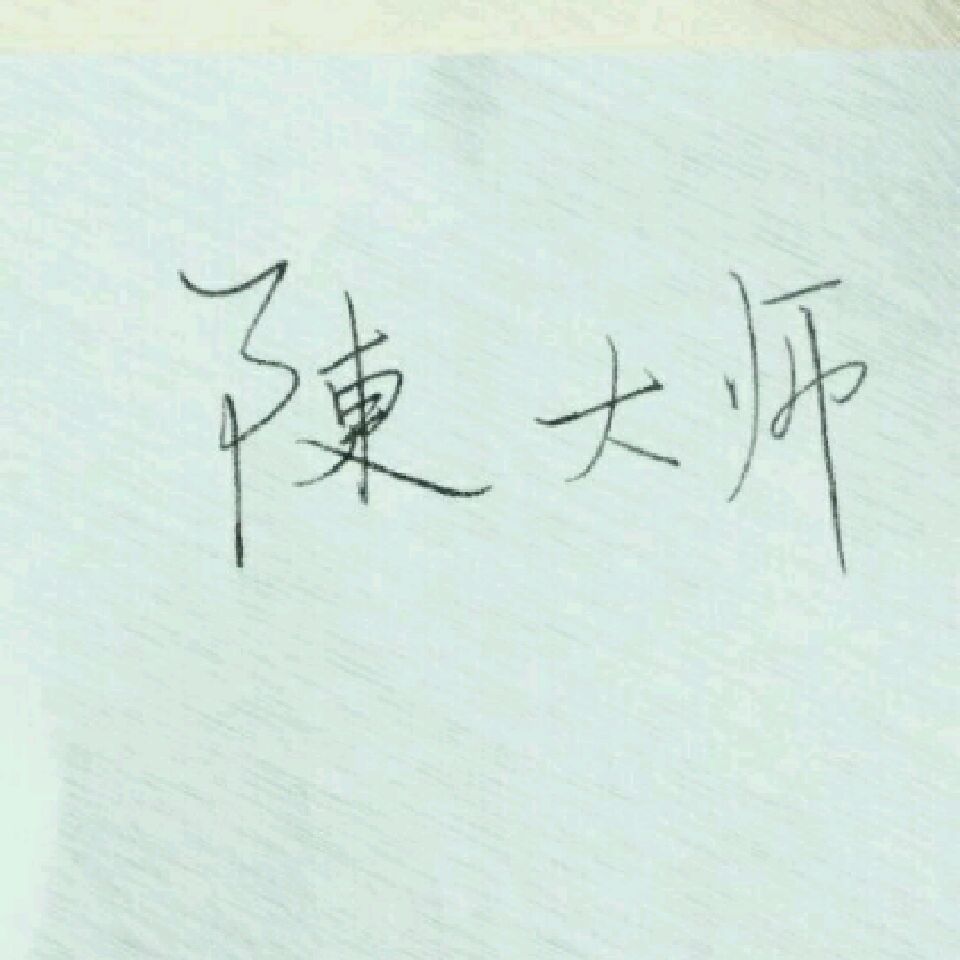 陳大师